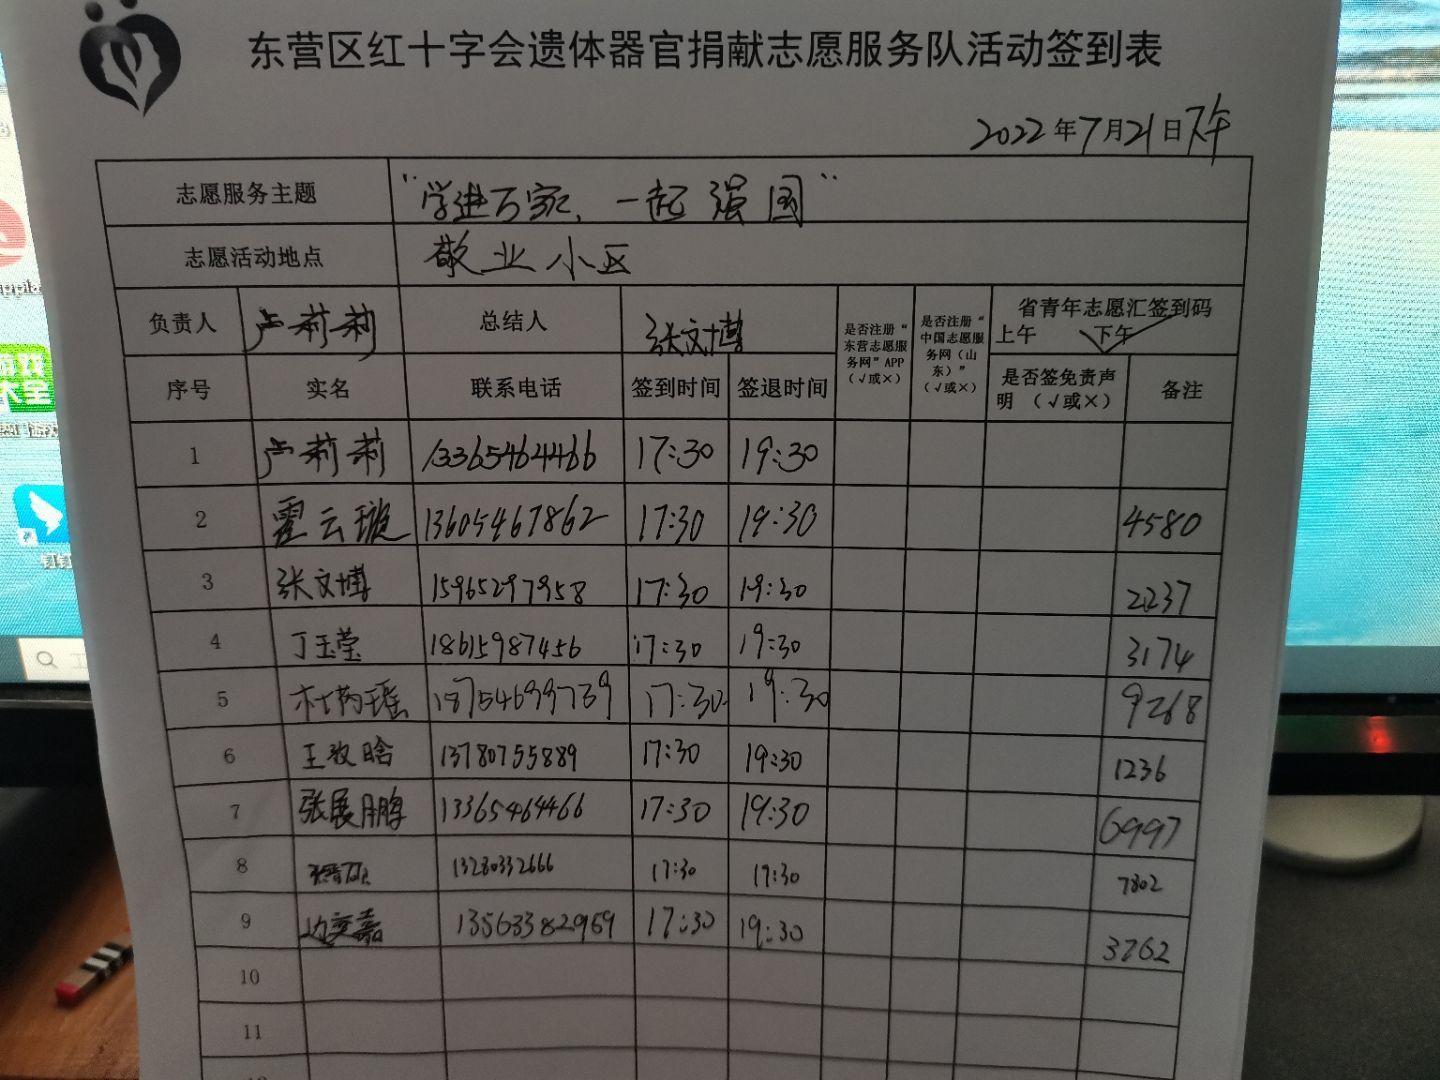 东营区红十字会遗体器官捐献志愿服务队活动签到表
2022年7月21日下午
志愿服务主题 “学进万家、一起强国”
志愿活动地点 敬业小区
负责人 卢莉莉 总结人 张文博 是否注册“东营志愿服务网”APP（√或×） 是否注册“中国志愿服务网（山东）”（√或×） 省青年志愿汇签到码
上午 下午√
序号 实名 联系电话 签到时间 签退时间 是否签免责声明（√或×） 备注
1 卢莉莉 13365464466 17:30 19:30
2 霍云璇 13605467862 17:30 19:30 4580
3 张文博 15965297958 17:30 19:30 2237
4 丁玉莹 18615987456 17:30 19:30 3174
5 杜筠瑶 18754699739 17:30 19:30 9268
6 王玫晗 13780755889 17:30 19:30 1236
7 张展鹏 13365464466 17:30 19:30 6997
8 13280332666 17:30 19:30 7802
9 嘉 13563382969 17:30 19:30 3762
10
11